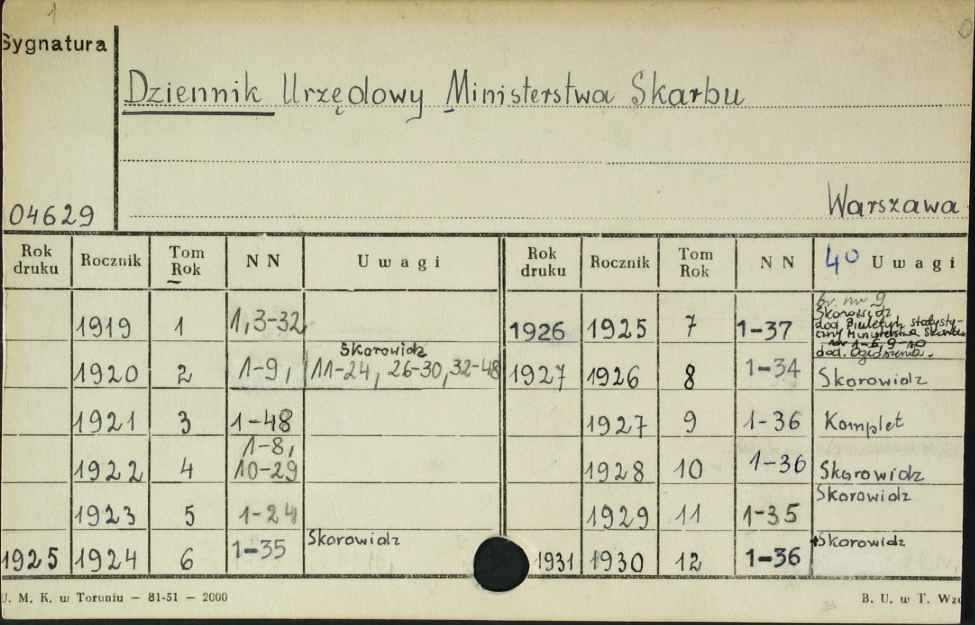 1
Sygnatura
Dziennik Urzędowy Ministerstwa Skarbu
04629
Warszawa
Rok druku Rocznik Tom Rok NN Uwagi Rok druku Rocznik Tom Rok NN 40 Uwagi
1919 1 1,3-32 1926 1925 7 1-37 br. nr 9 Skorowidz dod. Biuletyn statystyczny Ministerstwa Skarbu nr 1-6, 9-10 dod.
1920 2 1-9, Skorowidz 11-24, 26-30, 32-48 1927 1926 8 1-34 Skorowidz
1921 3 1-48 1927 9 1-36 Komplet
1922 4 1-8, 10-29 1928 10 1-36 Skorowidz
1923 5 1-24 1929 11 1-35 Skorowidz
1925 1924 6 1-35 Skorowidz 1931 1930 12 1-36 +Skorowidz
U. M. K. w Toruniu — 81-51 — 2000
B. U. w T. Wzó